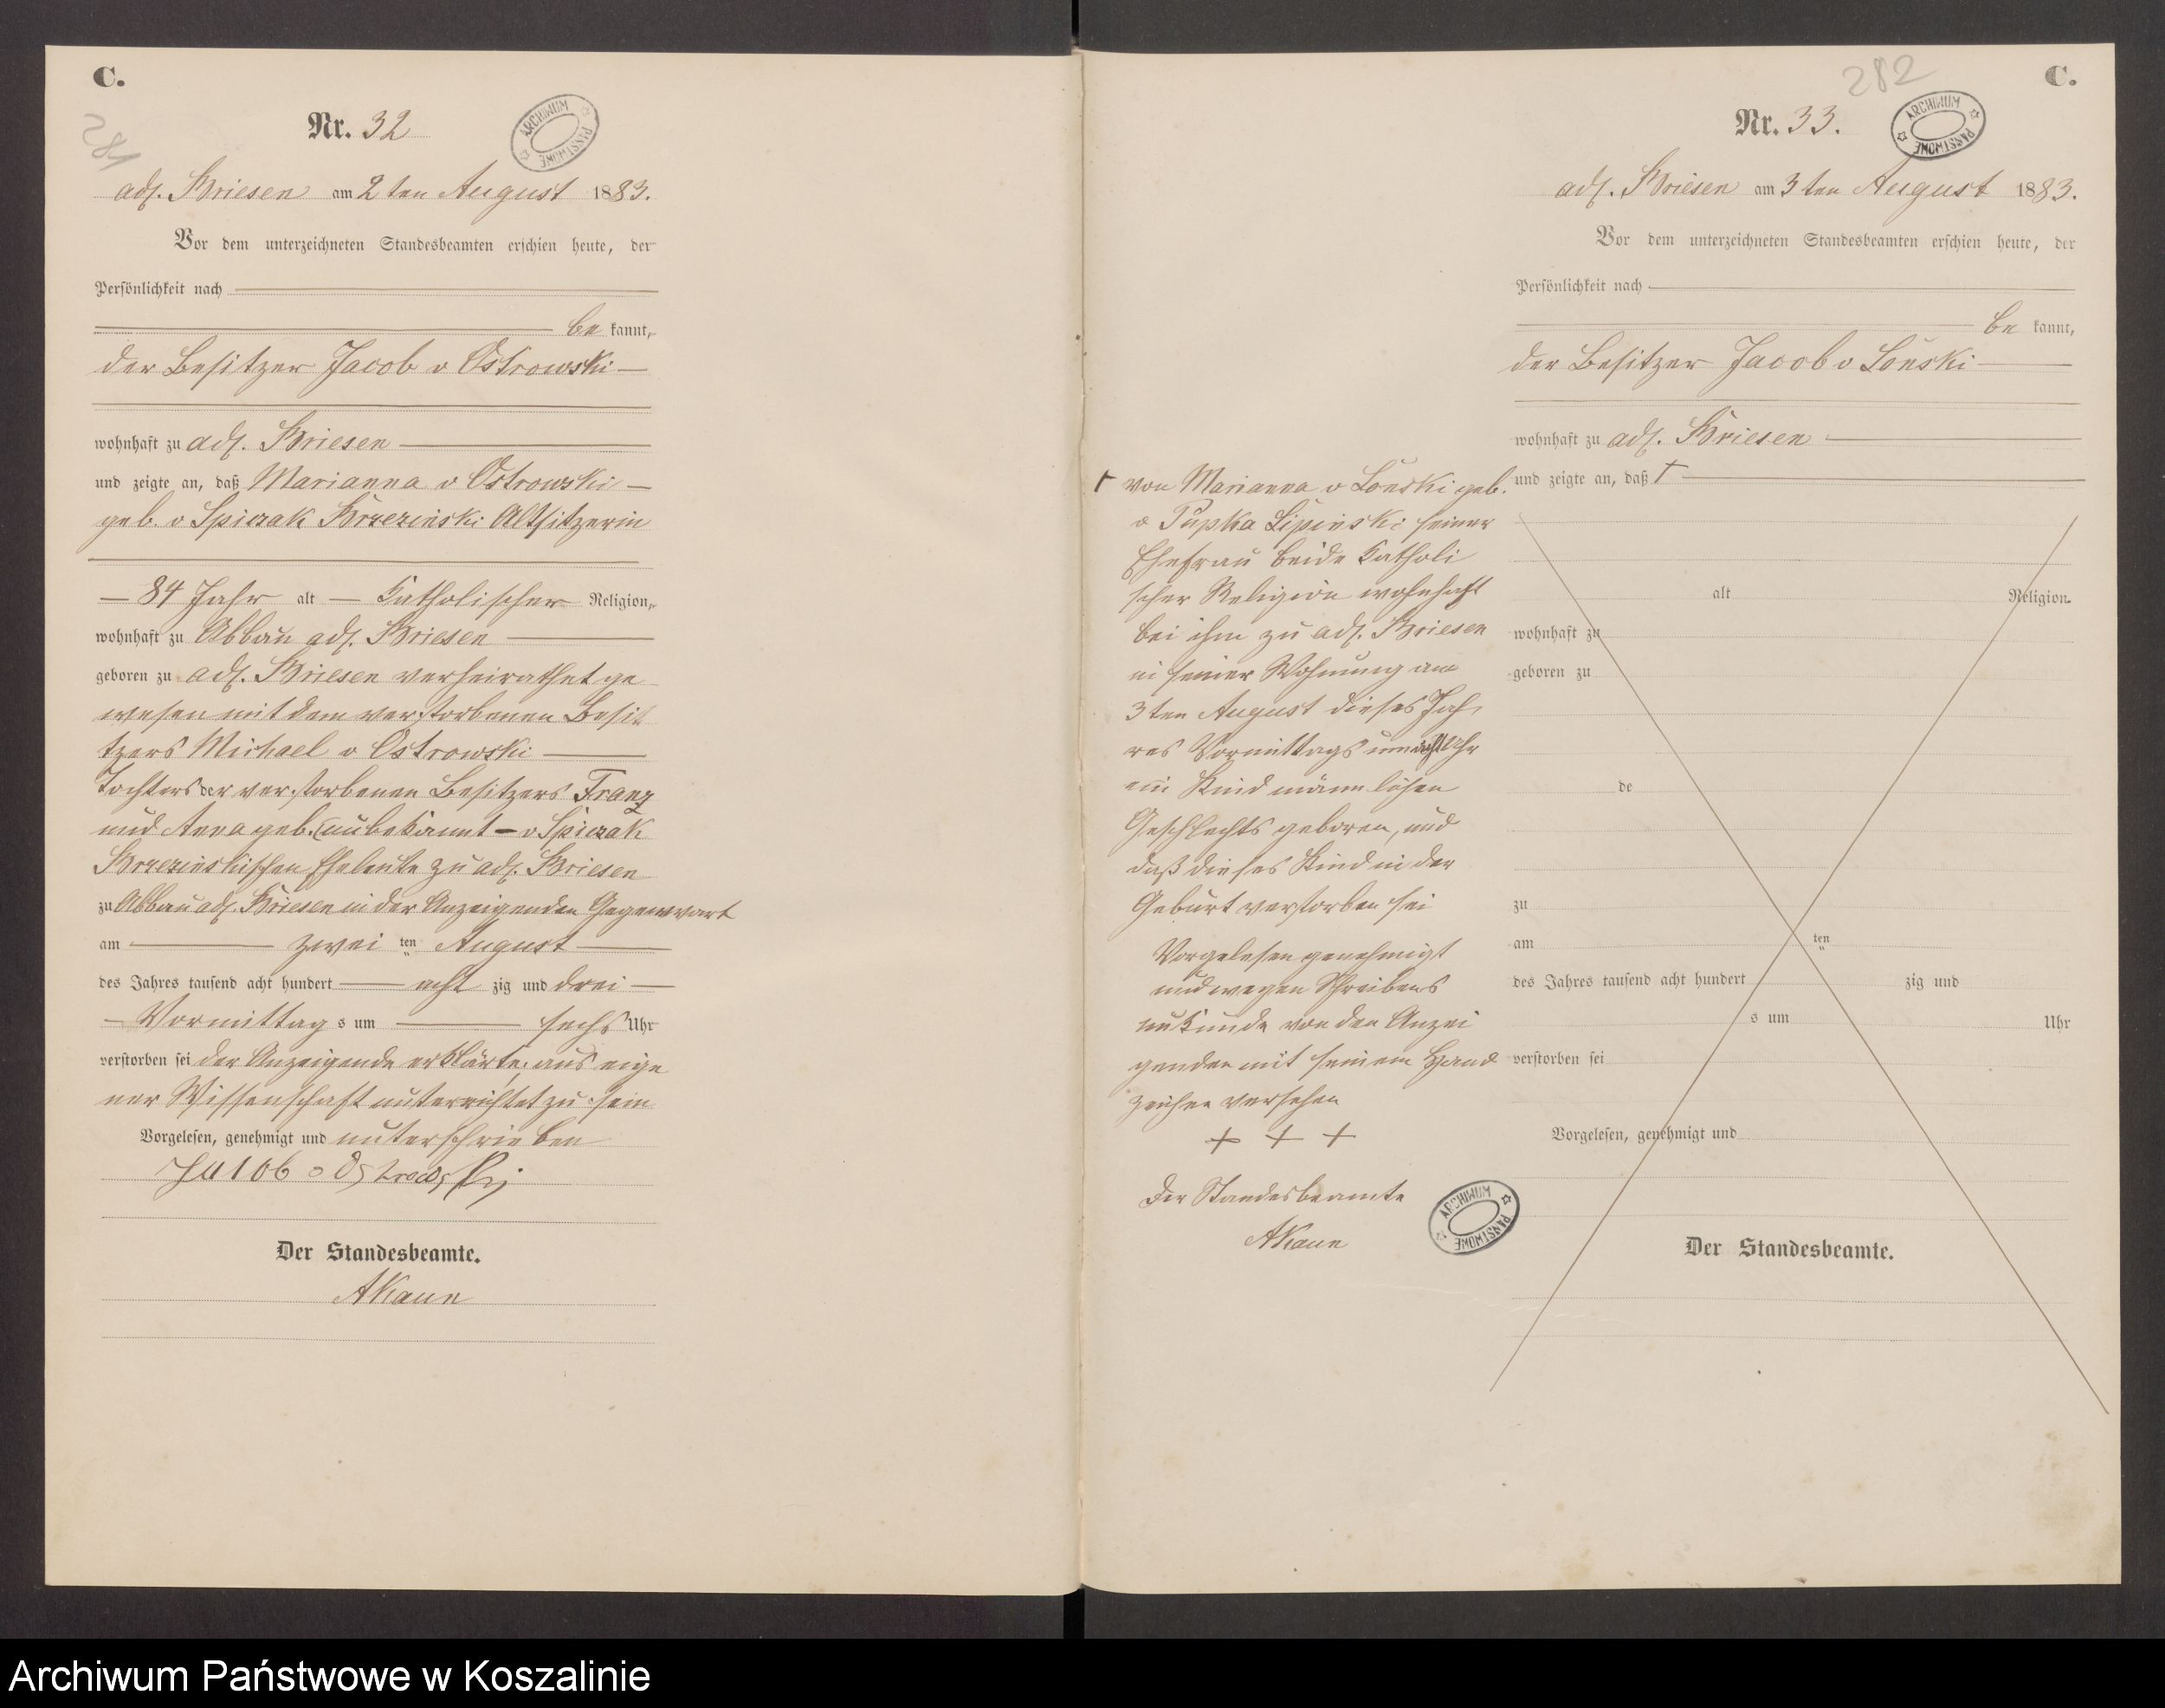 C.
281
Nr. 32
ARCHIWUM PAŃSTWOWE
adl. Briesen am 2ten August 1883.
Vor dem unterzeichneten Standesbeamten erschien heute, der
Persönlichkeit nach
be kannt,
der Besitzer Jacob v Ostrowski
wohnhaft zu adl. Briesen
und zeigte an, daß Marianna v Ostrowski
geb. v Spiczak Brzezinski Altsitzerin
84 Jahr alt Katholischer Religion,
wohnhaft zu Abbau adl. Briesen
geboren zu adl. Briesen verheirathet ge
wesen mit dem verstorbenen Besit
tzers Michael v Ostrowski
Tochters der verstorbenen Besitzers Franz
und Anna geb. unbekannt - v Spiczak
Brzezinskischen Eheleute zu adl. Briesen
zu Abbau adl. Briesen in der Anzeigenden Gegenwart
am zwei ten August
des Jahres tausend acht hundert acht zig und drei
Vormittag s um sechs Uhr
verstorben sei der Anzeigende erklärte, aus eige
ner Wissenschaft unterrichtet zu sein
Vorgelesen, genehmigt und unterschrieben
Jakob v Ostrowski
Der Standesbeamte.
AKaun
C.
282
Nr. 33.
ARCHIWUM PAŃSTWOWE
adl. Briesen am 3ten August 1883.
Vor dem unterzeichneten Standesbeamten erschien heute, der
Persönlichkeit nach
be kannt,
der Besitzer Jacob v Lonski
wohnhaft zu adl. Briesen
und zeigte an, daß †
† von Marianna v Lonski geb.
v Pupka Lipinski seiner
Ehefrau beide Katholi
scher Religion wohnhaft
bei ihm zu adl. Briesen
in seiner Wohnung am
3ten August dieses Jah,
res Vormittags um acht Uhr
ein Kind männlichen
Geschlechts geboren, und
daß dieses Kind in der
Geburt verstorben sei
Vorgelesen genehmigt
und wegen Schreibens
unkunde von den Anzei
genden mit seinem Hand
zeichen versehen
+ + +
Der Standesbeamte
AKaun
ARCHIWUM PAŃSTWOWE
alt Religion.
wohnhaft zu
geboren zu
de
zu
am ten
des Jahres tausend acht hundert zig und
s um Uhr
verstorben sei
Vorgelesen, genehmigt und
Der Standesbeamte.
Archiwum Państwowe w Koszalinie